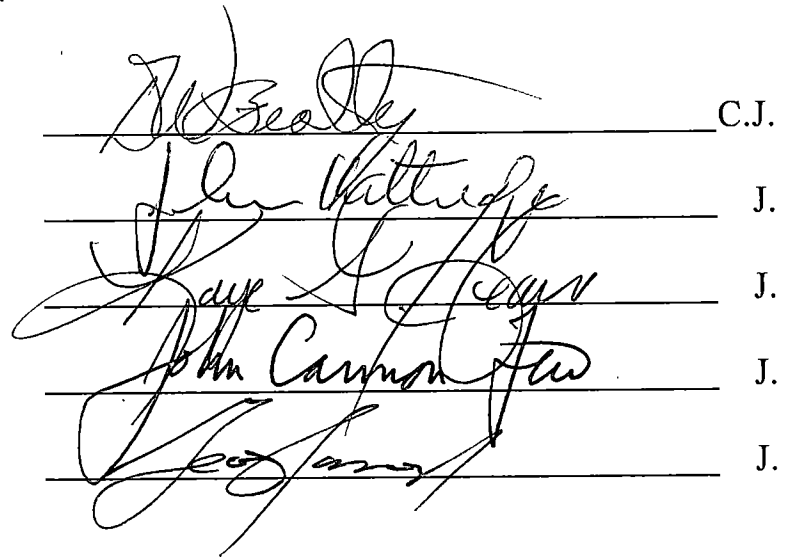 Beatty C.J.
John Kittredge J.
Kaye G. Hearn J.
John Cannon Few J.
Geo James J.